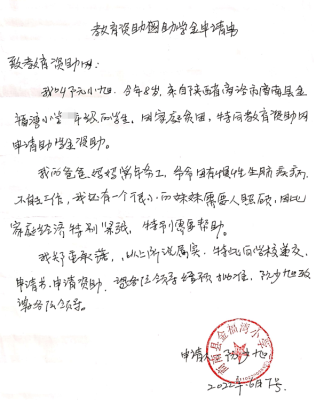 教育资助网助学金申请书
致教育资助网：
我叫阮小旭，今年8岁，来自陕西省商洛市商南县金
福湾小学 年级的学生，因家庭贫困，特向教育资助网
申请助学金资助。
我的爸爸妈妈常年务工，爷爷患有慢性生肺疾病，
不能工作，我还有一个很小的妹妹需要人照顾，因此
家庭经济特别紧张，特别需要帮助。
我郑重承诺，以上所说属实，特此向学校递交
申请书，申请资助，请各位领导 批准，阮小旭致
谢各位领导。
商南县金福湾小学
申请人：阮 旭
2022年6月7号